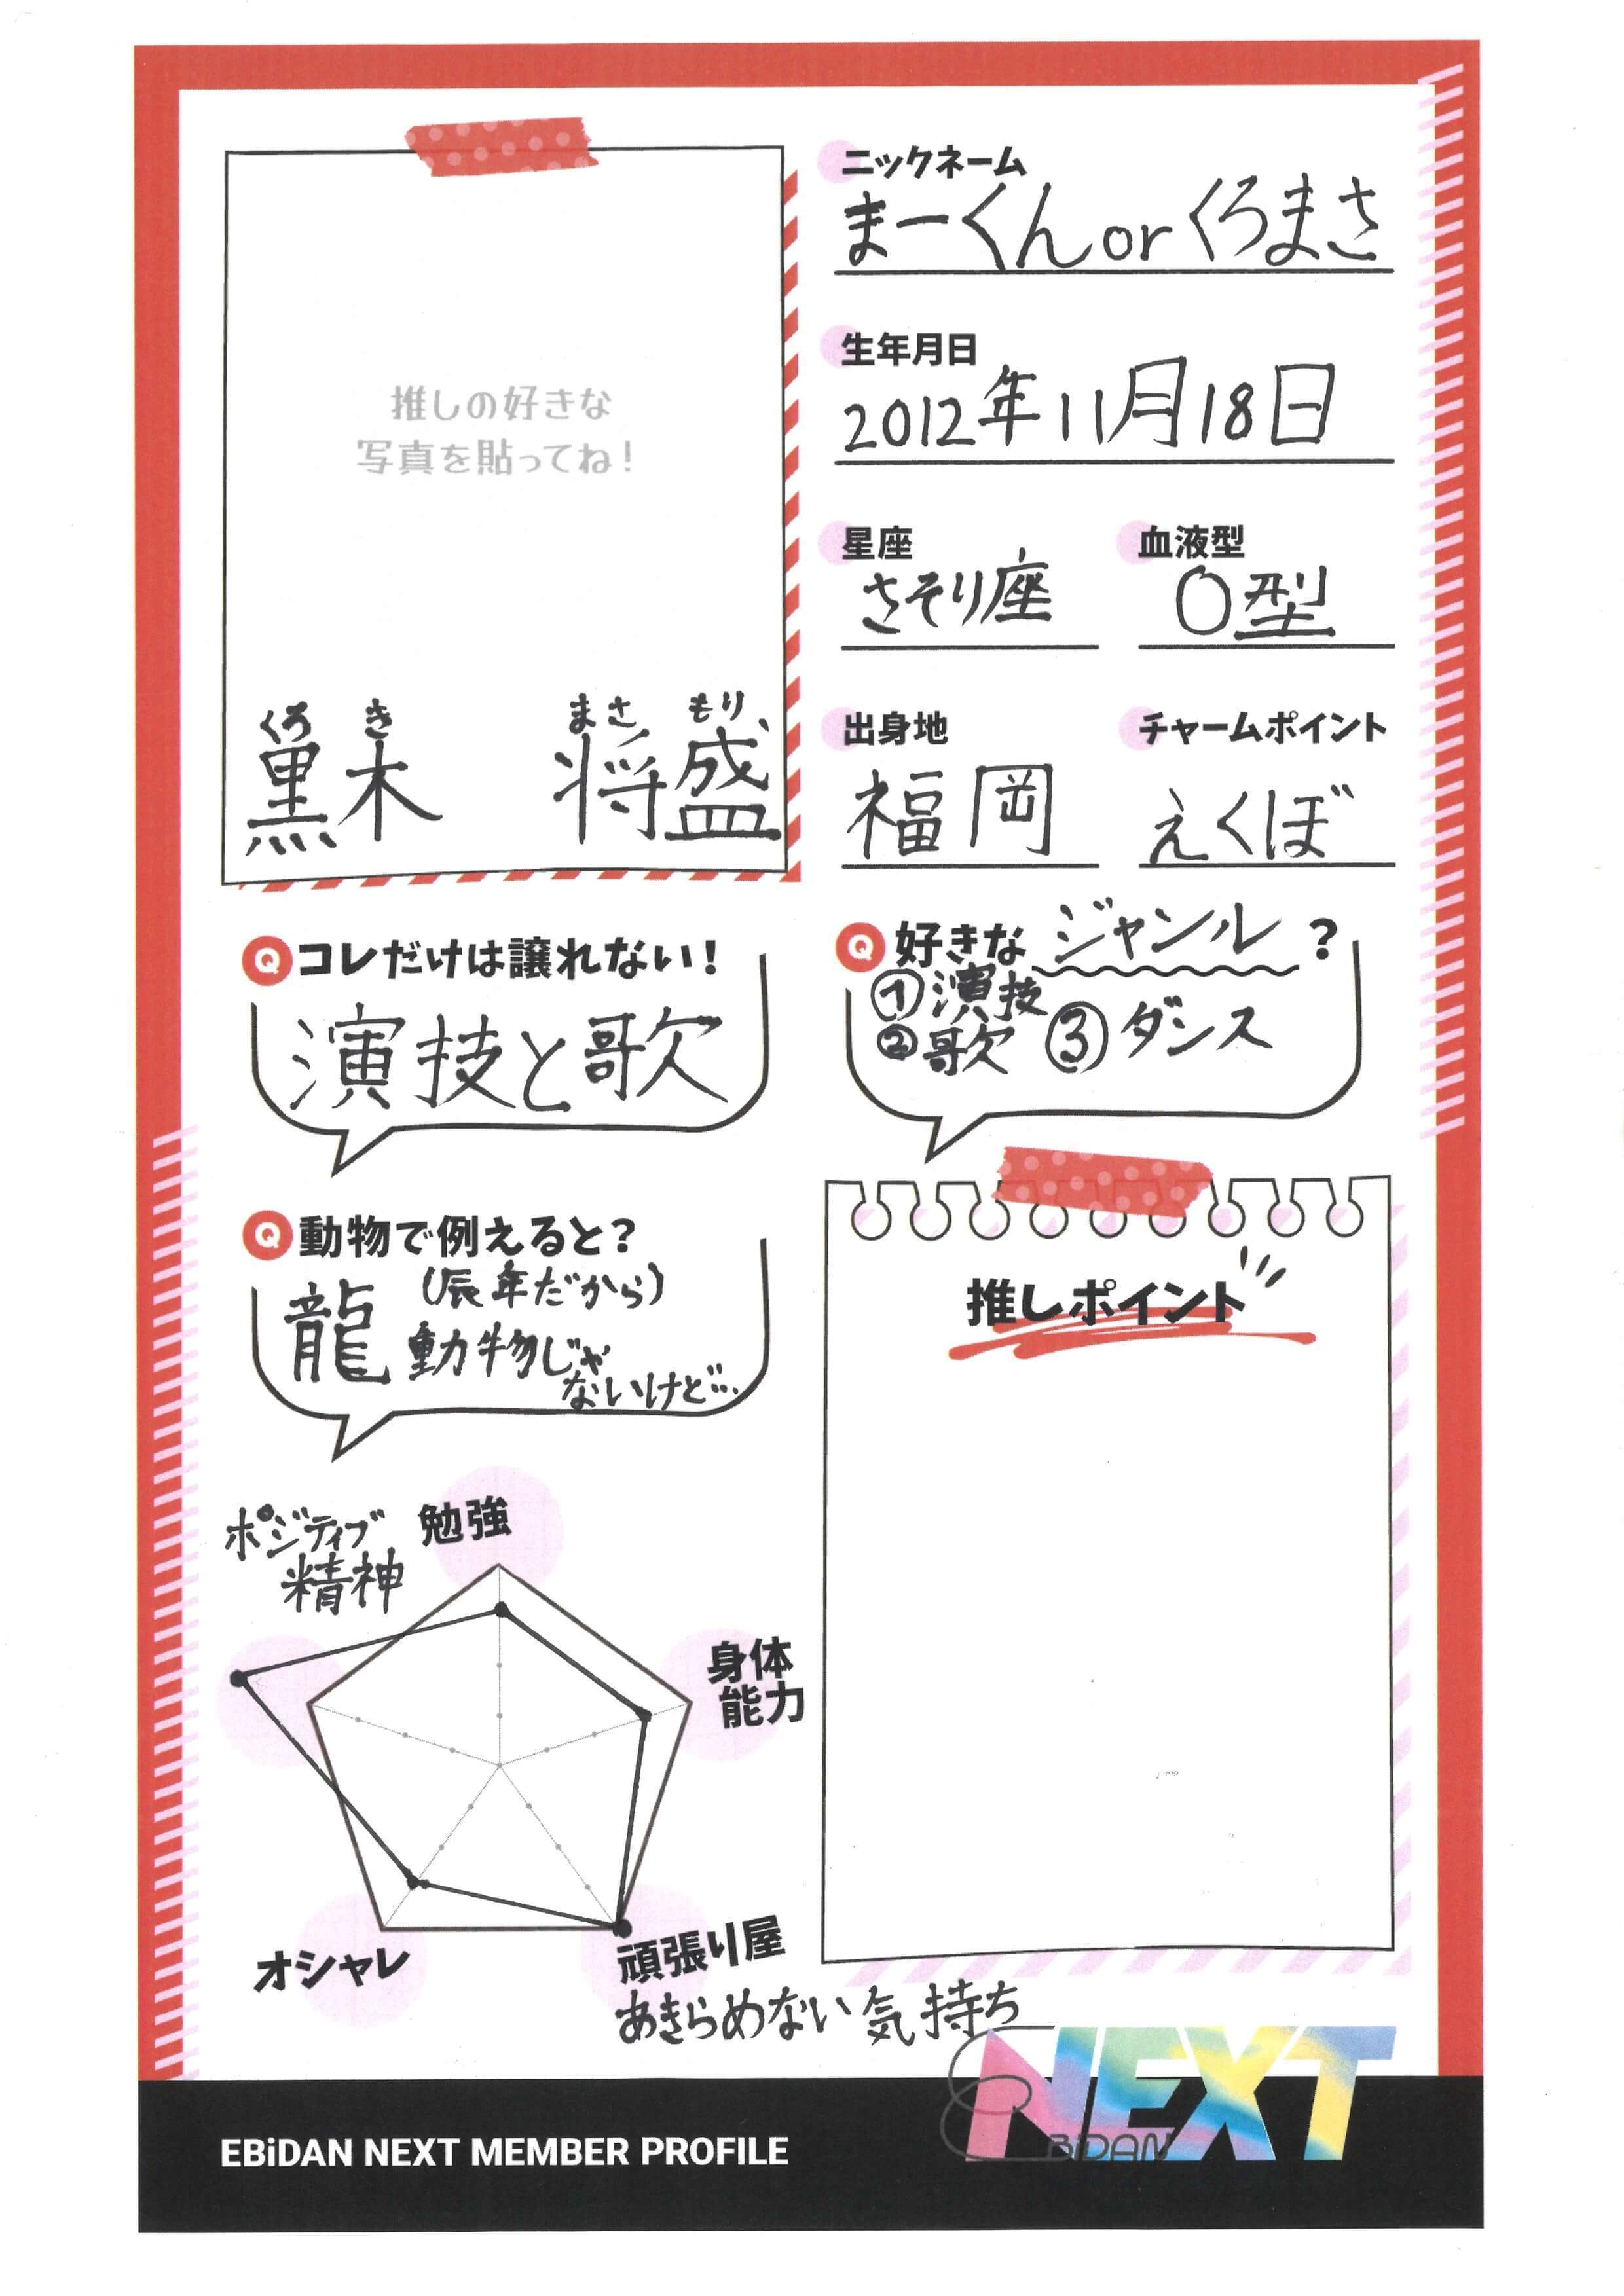 推しの好きな
写真を貼ってね！
くろ き まさ もり
黒木 将盛
ニックネーム
まーくんorくろまさ
生年月日
2012年11月18日
星座
さそり座
血液型
O型
出身地
福岡
チャームポイント
えくぼ
Qコレだけは譲れない！
演技と歌
Q好きなジャンル？
①演技
②歌 ③ダンス
Q動物で例えると？
龍 (辰年だから)
動物じゃ
ないけど…
推しポイント
ポジティブ
精神
勉強
身体
能力
オシャレ
頑張り屋
あきらめない気持ち
EBiDAN NEXT MEMBER PROFILE
NEXT
EBiDAN